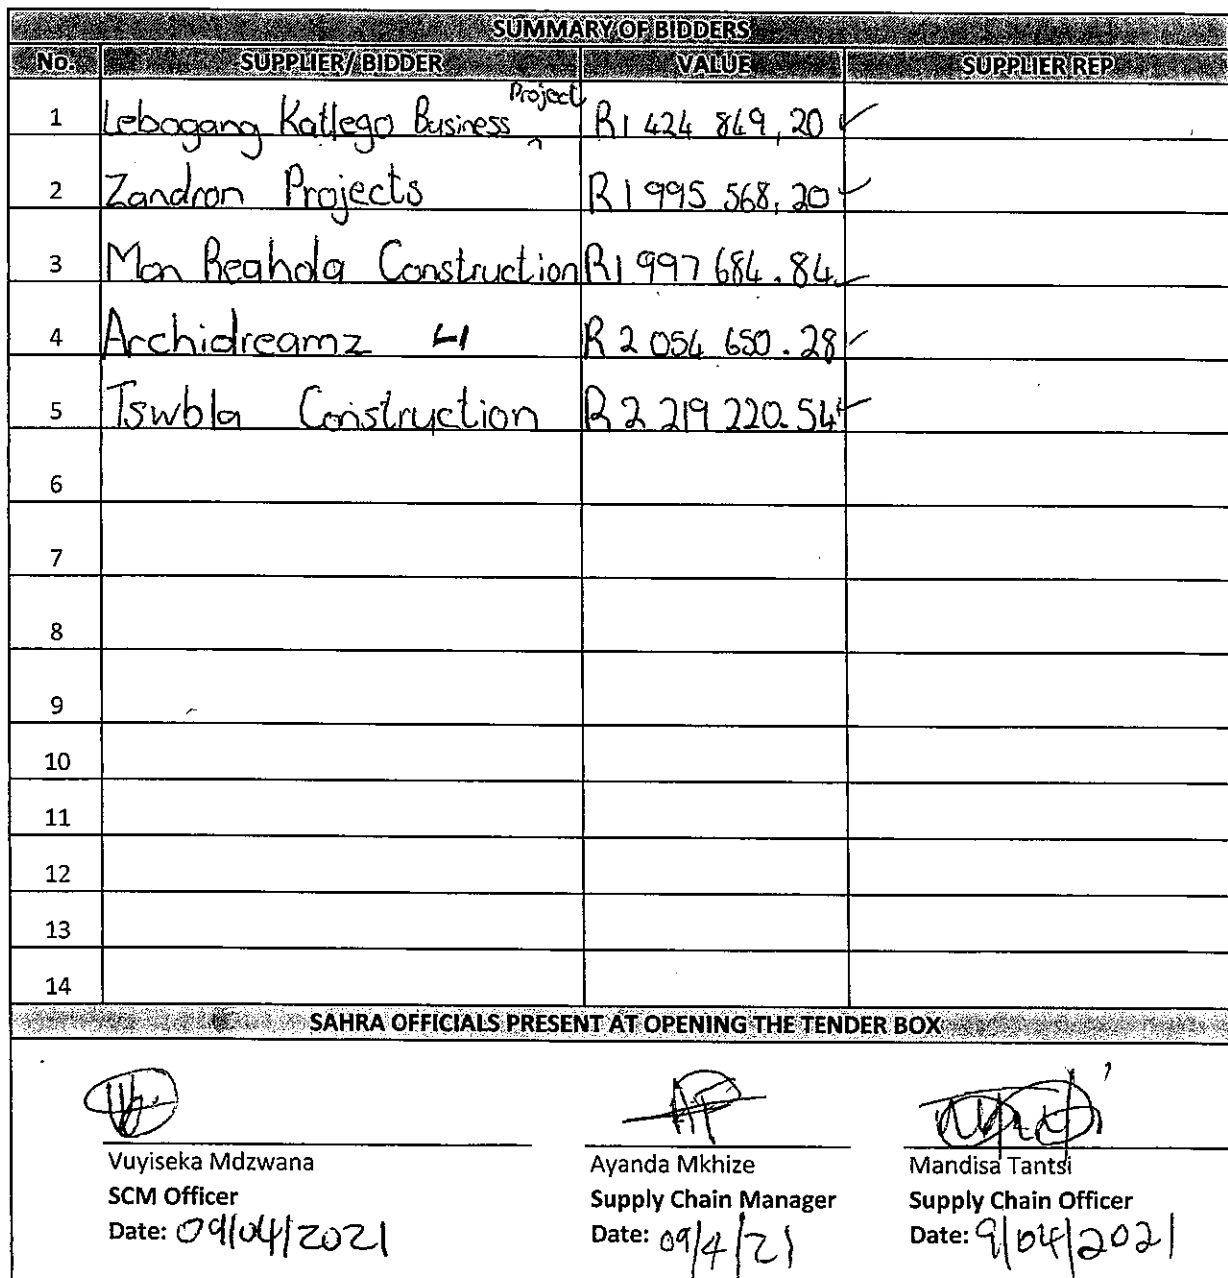 SUMMARY OF BIDDERS
No. SUPPLIER/ BIDDER VALUE SUPPLIER REP
1 Lebogang Katlego Business Project R1 424 849,20 ✓
2 Zandron Projects R1 995 568,20 ✓
3 Mon Reahola Construction R1 997 684.84 ✓
4 Archidreamz R2 054 650.28 ✓
5 Tswbla Construction R2 219 220.54 ✓
6
7
8
9
10
11
12
13
14
SAHRA OFFICIALS PRESENT AT OPENING THE TENDER BOX
Vuyiseka Mdzwana Ayanda Mkhize Mandisa Tantsi
SCM Officer Supply Chain Manager Supply Chain Officer
Date: 09/04/2021 Date: 09/4/21 Date: 9/04/2021